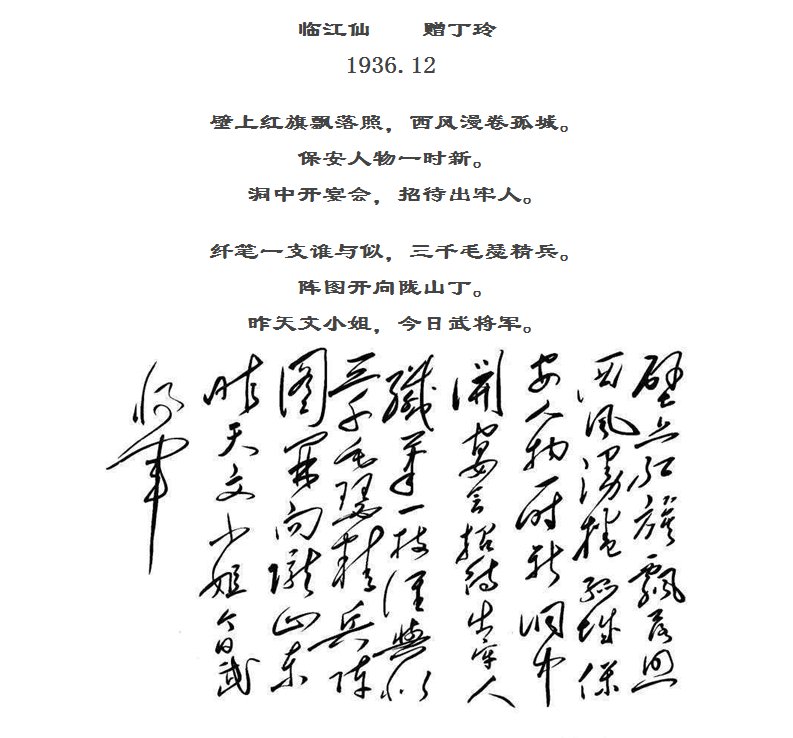 临江仙 赠丁玲
1936.12
壁上红旗飘落照，西风漫卷孤城。
保安人物一时新。
洞中开宴会，招待出牢人。
纤笔一支谁与似，三千毛瑟精兵。
阵图开向陇山丁。
昨天文小姐，今日武将军。
壁上红旗飘落照
西风漫捲孤城保
安人物一时新洞中
開宴会招待出牢人
纖筆一枝谁與似
三千毛瑟精兵陣
图開向隴山东
昨天文小姐今日武
将军